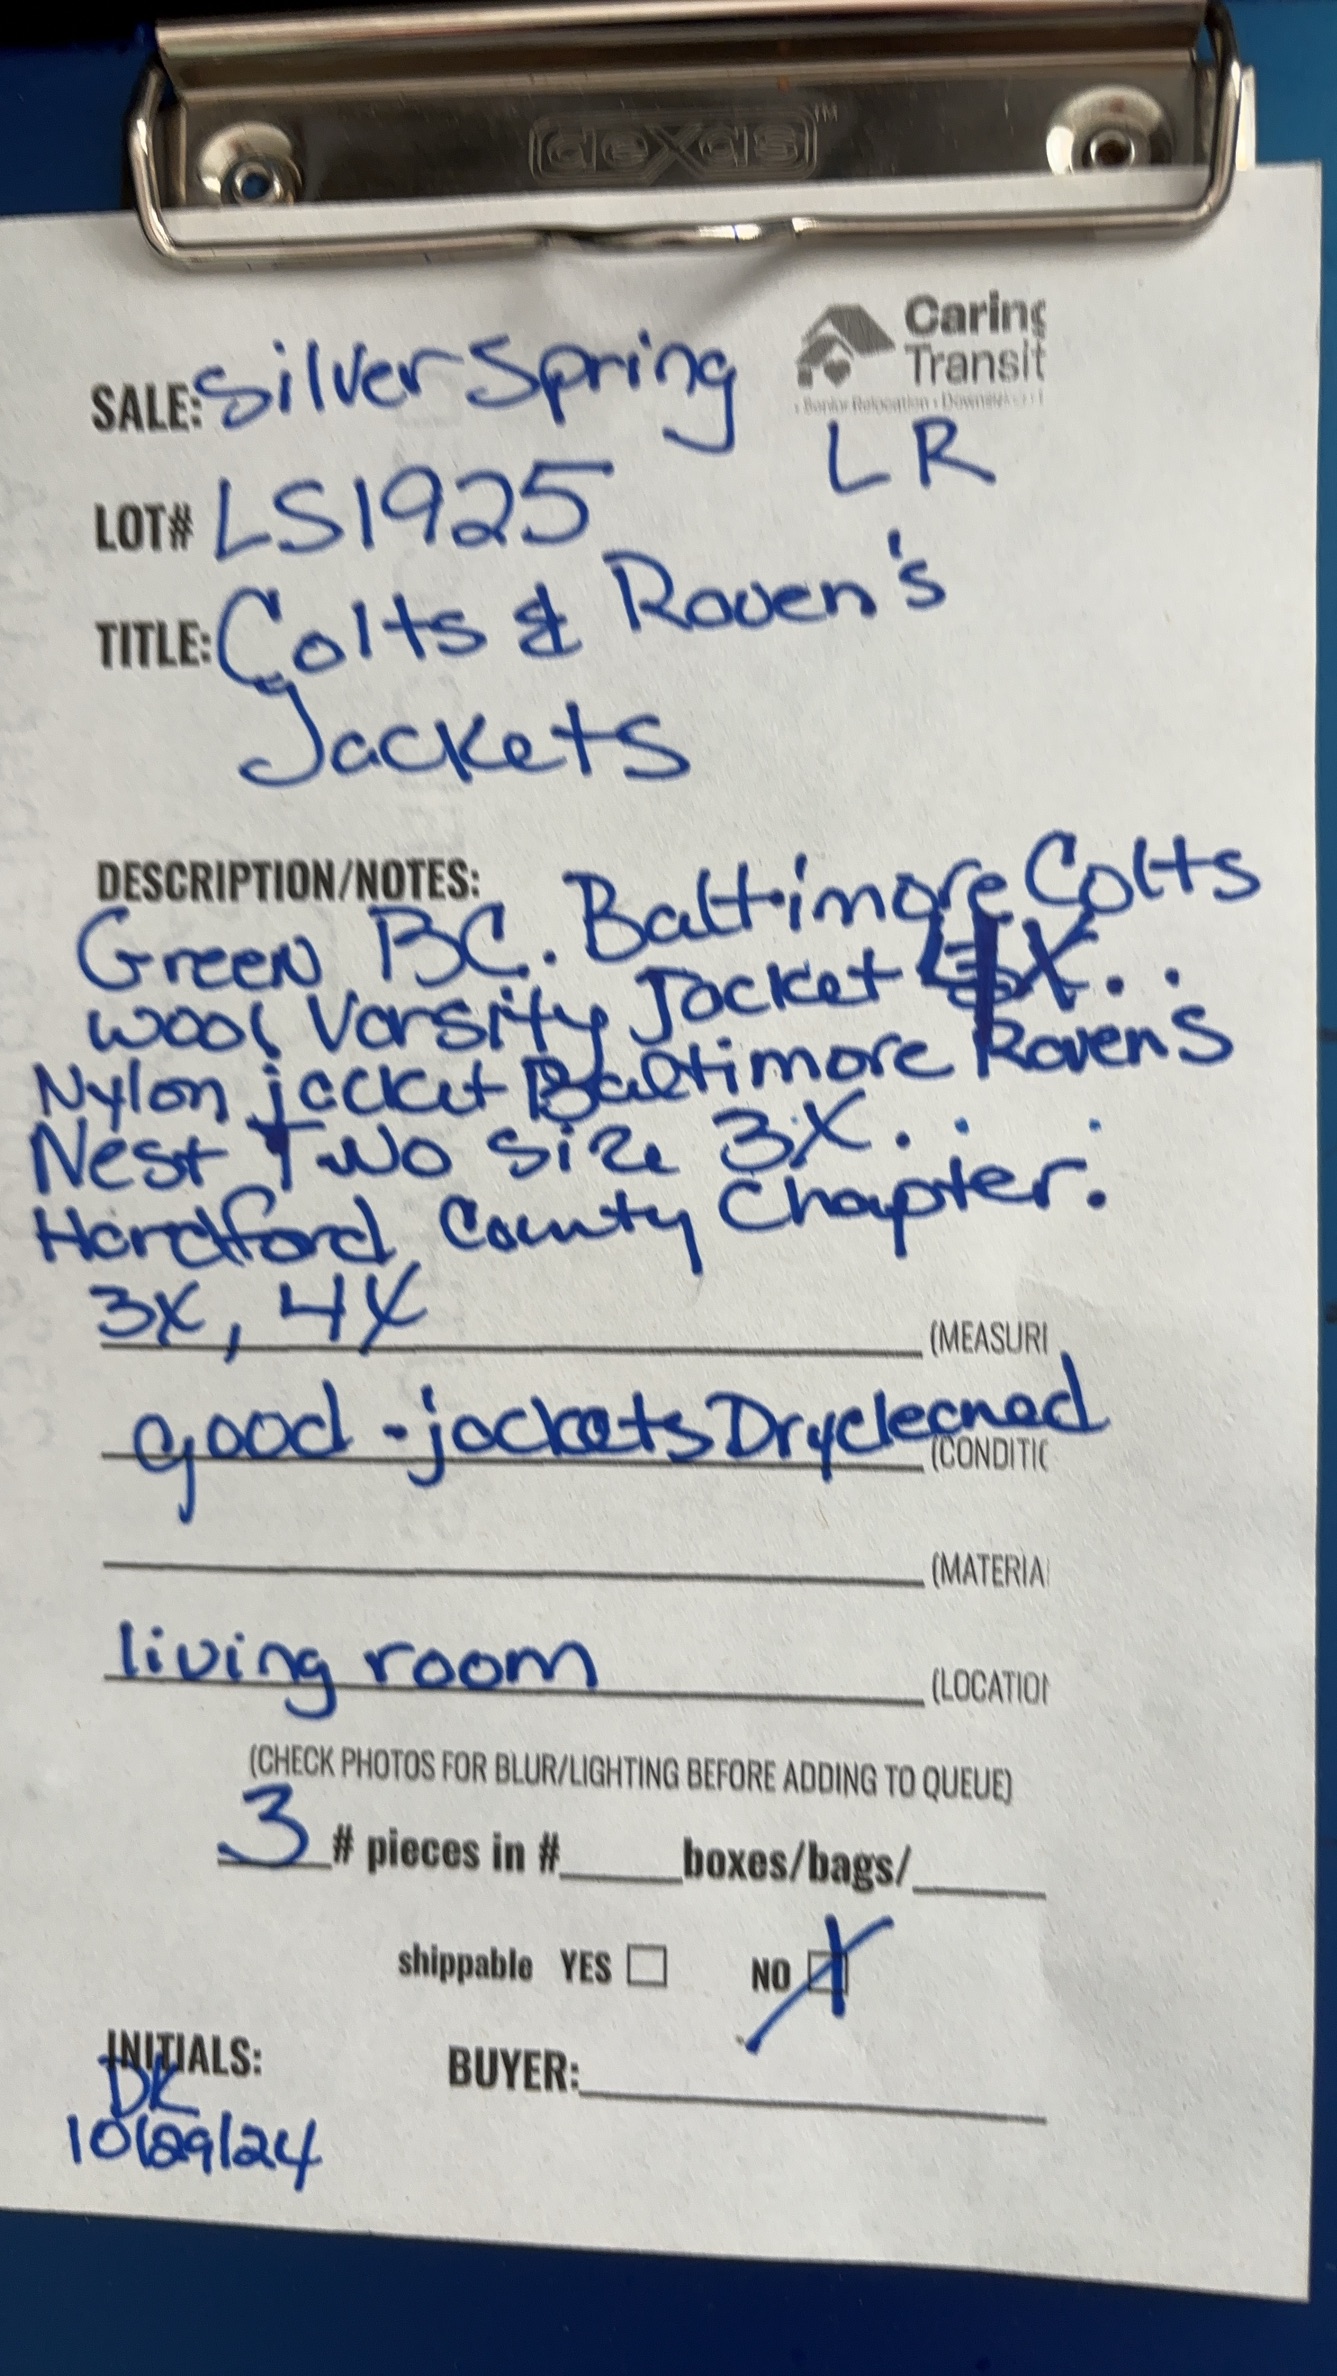 dexas™
Caring
Transit
• Senior Relocation • Downsizing
SALE: Silver Spring
LR
LOT# LS1925
TITLE: Colts & Raven's
Jackets
DESCRIPTION/NOTES:
Green BC. Baltimore Colts
wool Varsity Jacket 4X..
Nylon jacket Baltimore Ravens
Nest Two size 3X...
Hardford County Chapter.
3X, 4X (MEASURI
good - jackets Drycleaned (CONDITIO
(MATERIA
living room (LOCATION
(CHECK PHOTOS FOR BLUR/LIGHTING BEFORE ADDING TO QUEUE)
3 # pieces in # boxes/bags/
shippable YES NO
INITIALS: BUYER:
DK
10/29/24